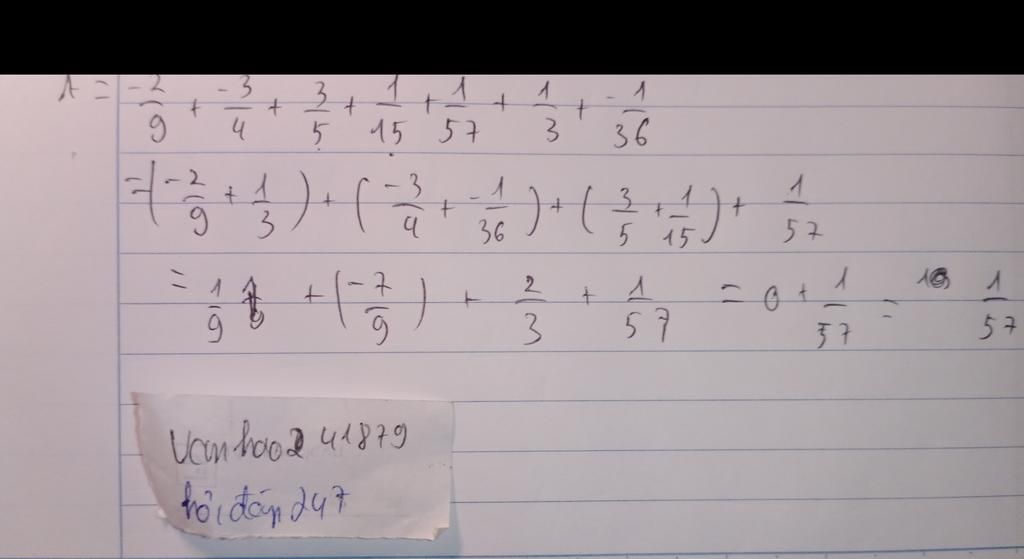 A = -2/9 + -3/4 + 3/5 + 1/15 + 1/57 + 1/3 + -1/36
= (-2/9 + 1/3) + (-3/4 + -1/36) + (3/5 + 1/15) + 1/57
= 1/9 + (-7/9) + 2/3 + 1/57 = 0 + 1/57 = 1/57
vanhao241879
hỏi đáp 247